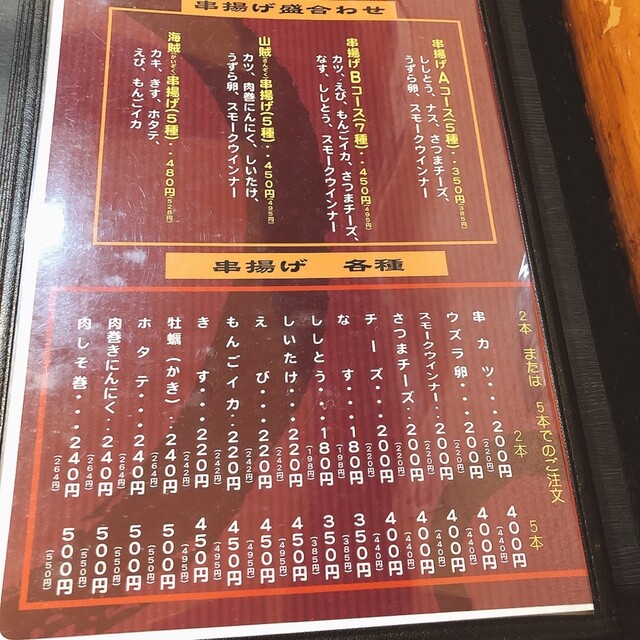 串揚げ盛合わせ
串揚げAコース(5種)・・350円(385円)
ししとう、ナス、さつまチーズ、
うずら卵、スモークウインナー
串揚げBコース(7種)・・450円(495円)
カツ、えび、もんごイカ、さつまチーズ、
なす、ししとう、スモークウインナー
山賊(さんぞく)串揚げ(5種)・・450円(495円)
カツ、肉巻にんにく、しいたけ、
うずら卵、スモークウインナー
海賊(かいぞく)串揚げ(5種)・・480円(528円)
カキ、きす、ホタテ、
えび、もんごイカ
串揚げ 各種
2本 または 5本でのご注文
2本 5本
串カツ・・・200円(220円) 400円(440円)
ウズラ卵・・・200円(220円) 400円(440円)
スモークウインナー・・200円(220円) 400円(440円)
さつまチーズ・・200円(220円) 400円(440円)
チーズ・・・200円(220円) 400円(440円)
なす・・・180円(198円) 350円(385円)
ししとう・・・180円(198円) 350円(385円)
しいたけ・・・220円(242円) 450円(495円)
えび・・・220円(242円) 450円(495円)
もんごイカ・・220円(242円) 450円(495円)
きす・・・220円(242円) 450円(495円)
牡蠣(かき) 240円(264円) 500円(550円)
ホタテ・・・240円(264円) 500円(550円)
肉巻きにんにく・・240円(264円) 500円(550円)
肉しそ巻・・・240円(264円) 500円(550円)